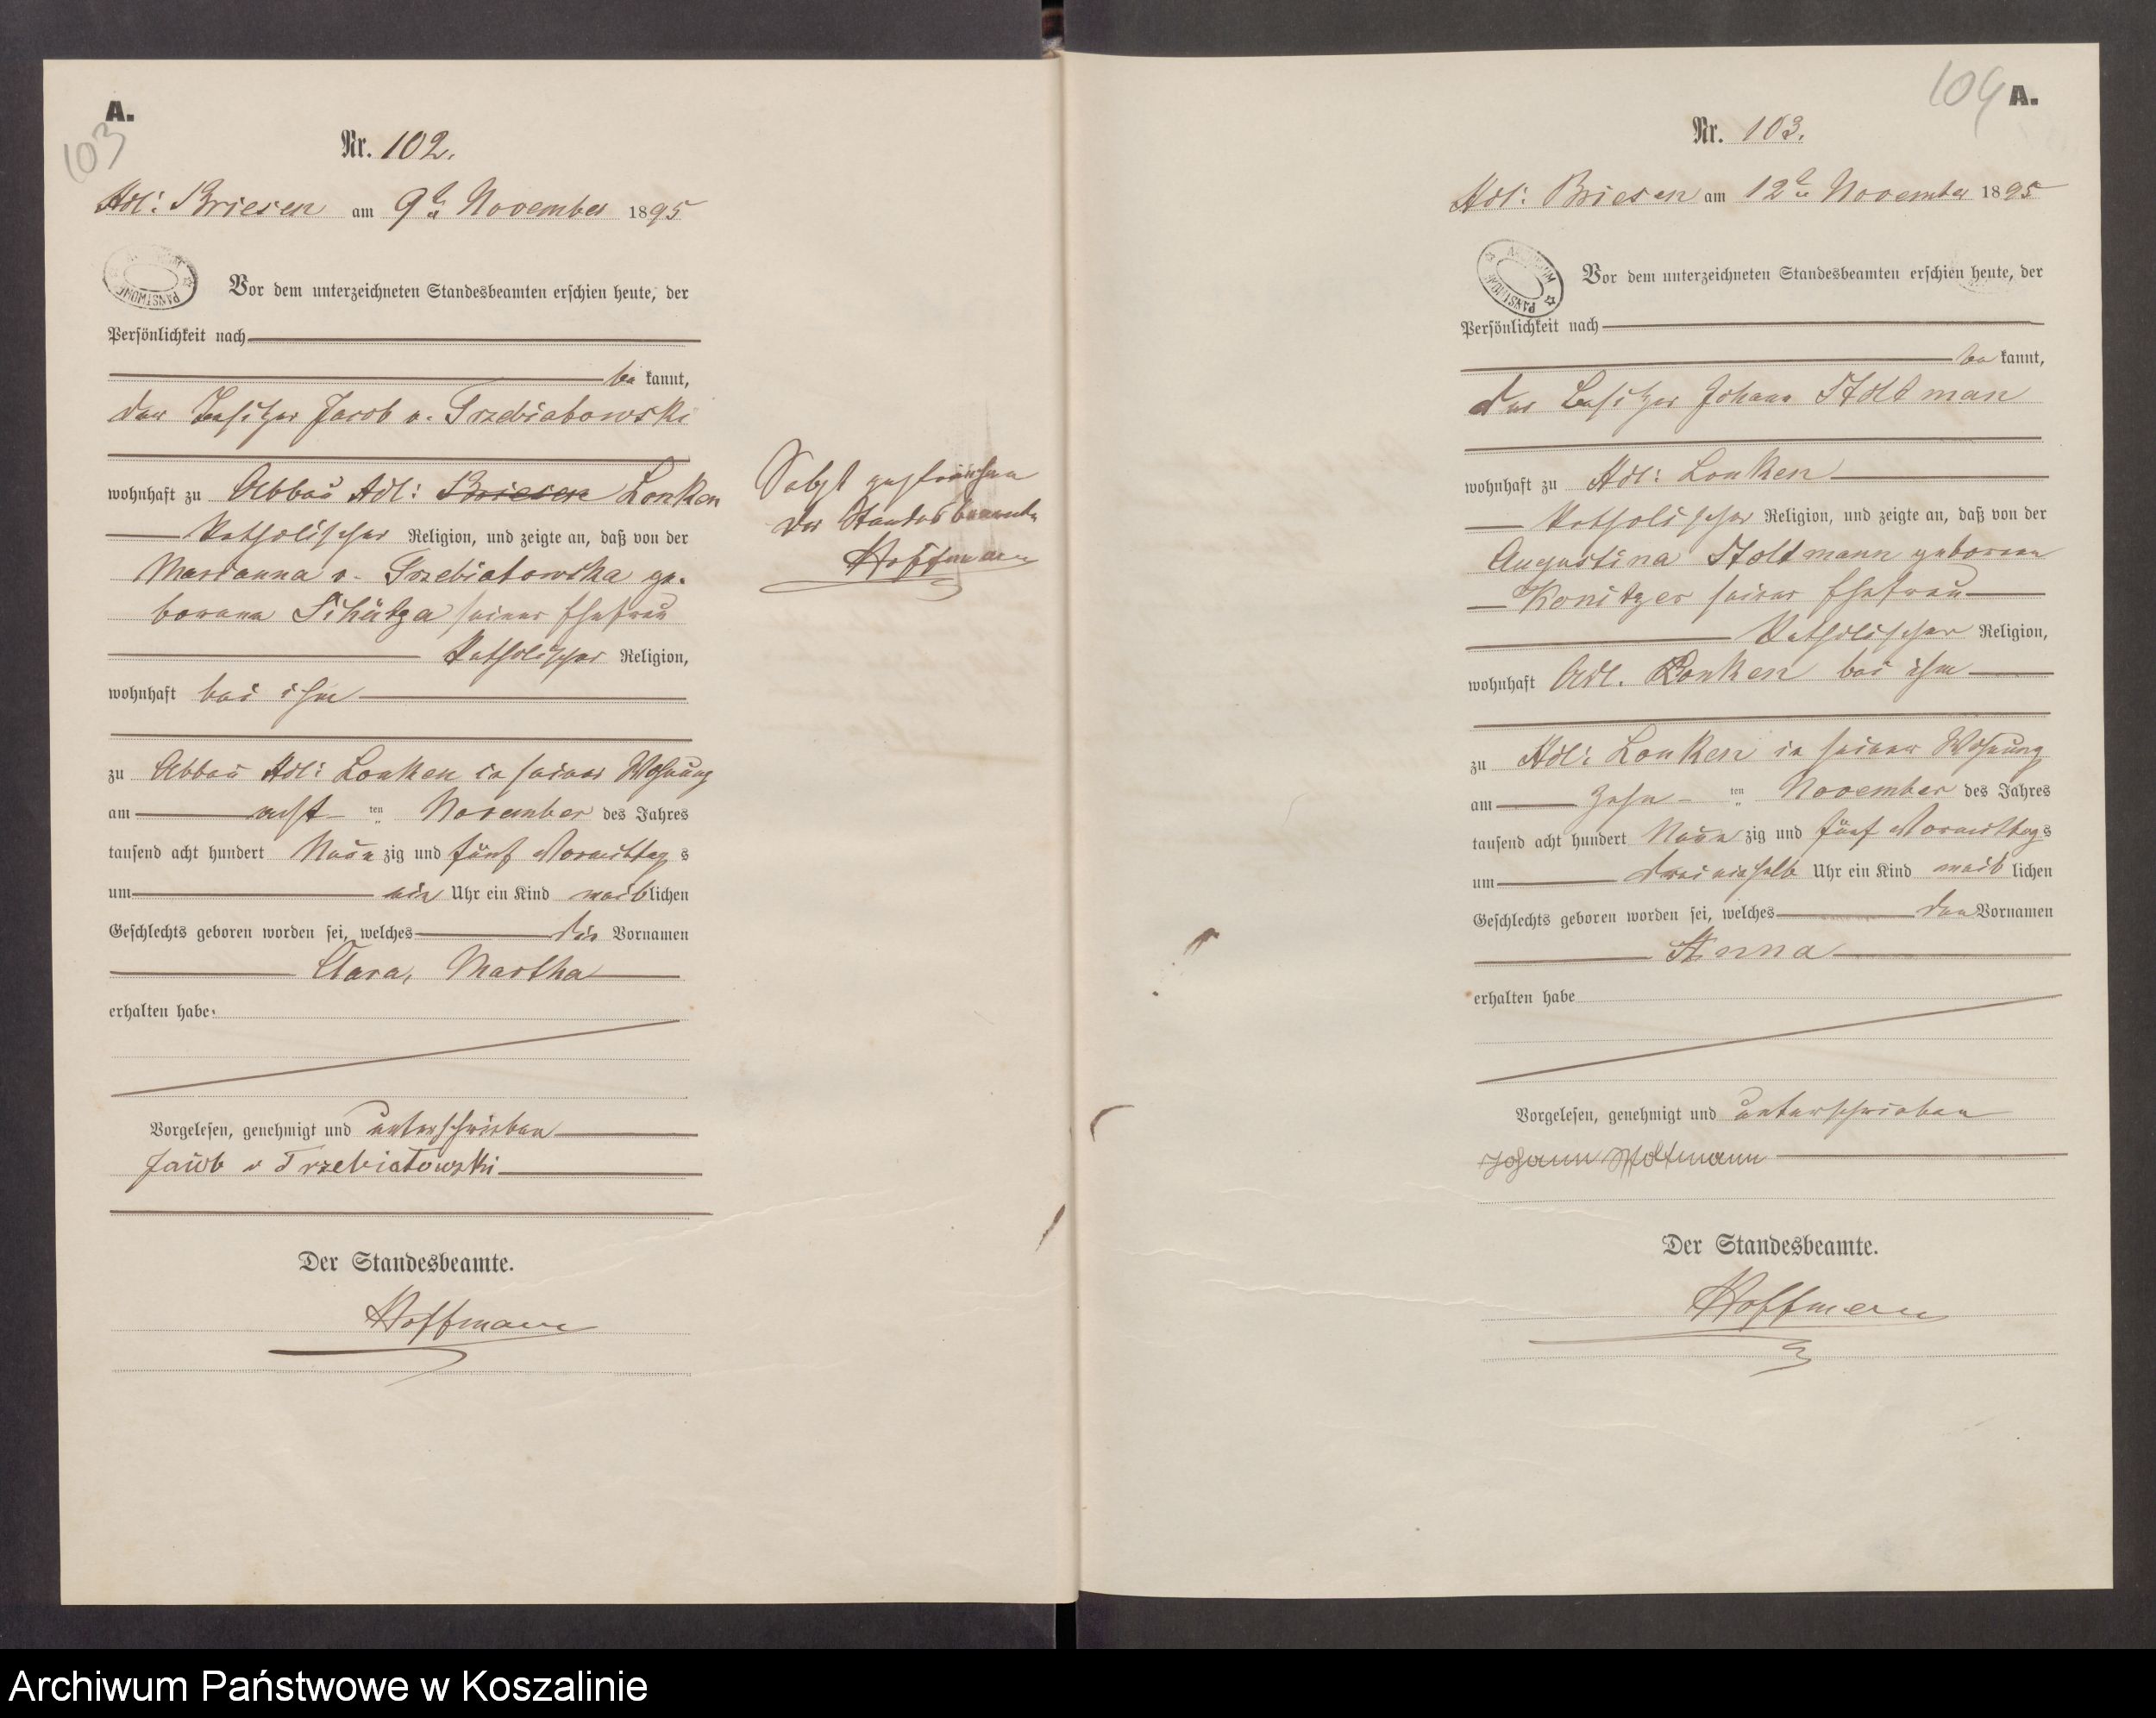 A.
103
Nr. 102.
Adl: Briesen am 9ten November 1895
Vor dem unterzeichneten Standesbeamten erschien heute, der
Persönlichkeit nach
be kannt,
der Besitzer Jacob v. Trzebiatowski
wohnhaft zu Abbau Adl: Briesen Lonken
katholischer Religion, und zeigte an, daß von der
Marianna v. Trzebiatowska ge-
borene Schütza seiner Ehefrau
katholischer Religion,
wohnhaft bei ihm
zu Abbau Adl: Lonken in seiner Wohnung
am acht ten November des Jahres
tausend acht hundert Neun zig und fünf Vormittag s
um ein Uhr ein Kind weib lichen
Geschlechts geboren worden sei, welches die Vornamen
Clara, Martha
erhalten habe.
Vorgelesen, genehmigt und unterschrieben
Jacob v Trzebiatowski
Der Standesbeamte.
Hoffmann
Selbst gestrichen
der Standesbeamte
Hoffmann
104 A.
Nr. 103.
Adl: Briesen am 12ten November 1895
ARCHIWUM PAŃSTWOWE
Vor dem unterzeichneten Standesbeamten erschien heute, der
Persönlichkeit nach
be kannt,
der Besitzer Johann Stoltman
wohnhaft zu Adl: Lonken
katholischer Religion, und zeigte an, daß von der
Augustina Stoltmann geborene
Konitzer seiner Ehefrau
katholischer Religion,
wohnhaft Adl. Lonken bei ihm
zu Adl: Lonken in seiner Wohnung
am zehn ten November des Jahres
tausend acht hundert Neun zig und fünf Vormittag s
um drei einhalb Uhr ein Kind weib lichen
Geschlechts geboren worden sei, welches den Vornamen
Anna
erhalten habe
Vorgelesen, genehmigt und unterschrieben
Johann Stoltmann
Der Standesbeamte.
Hoffmann
Archiwum Państwowe w Koszalinie